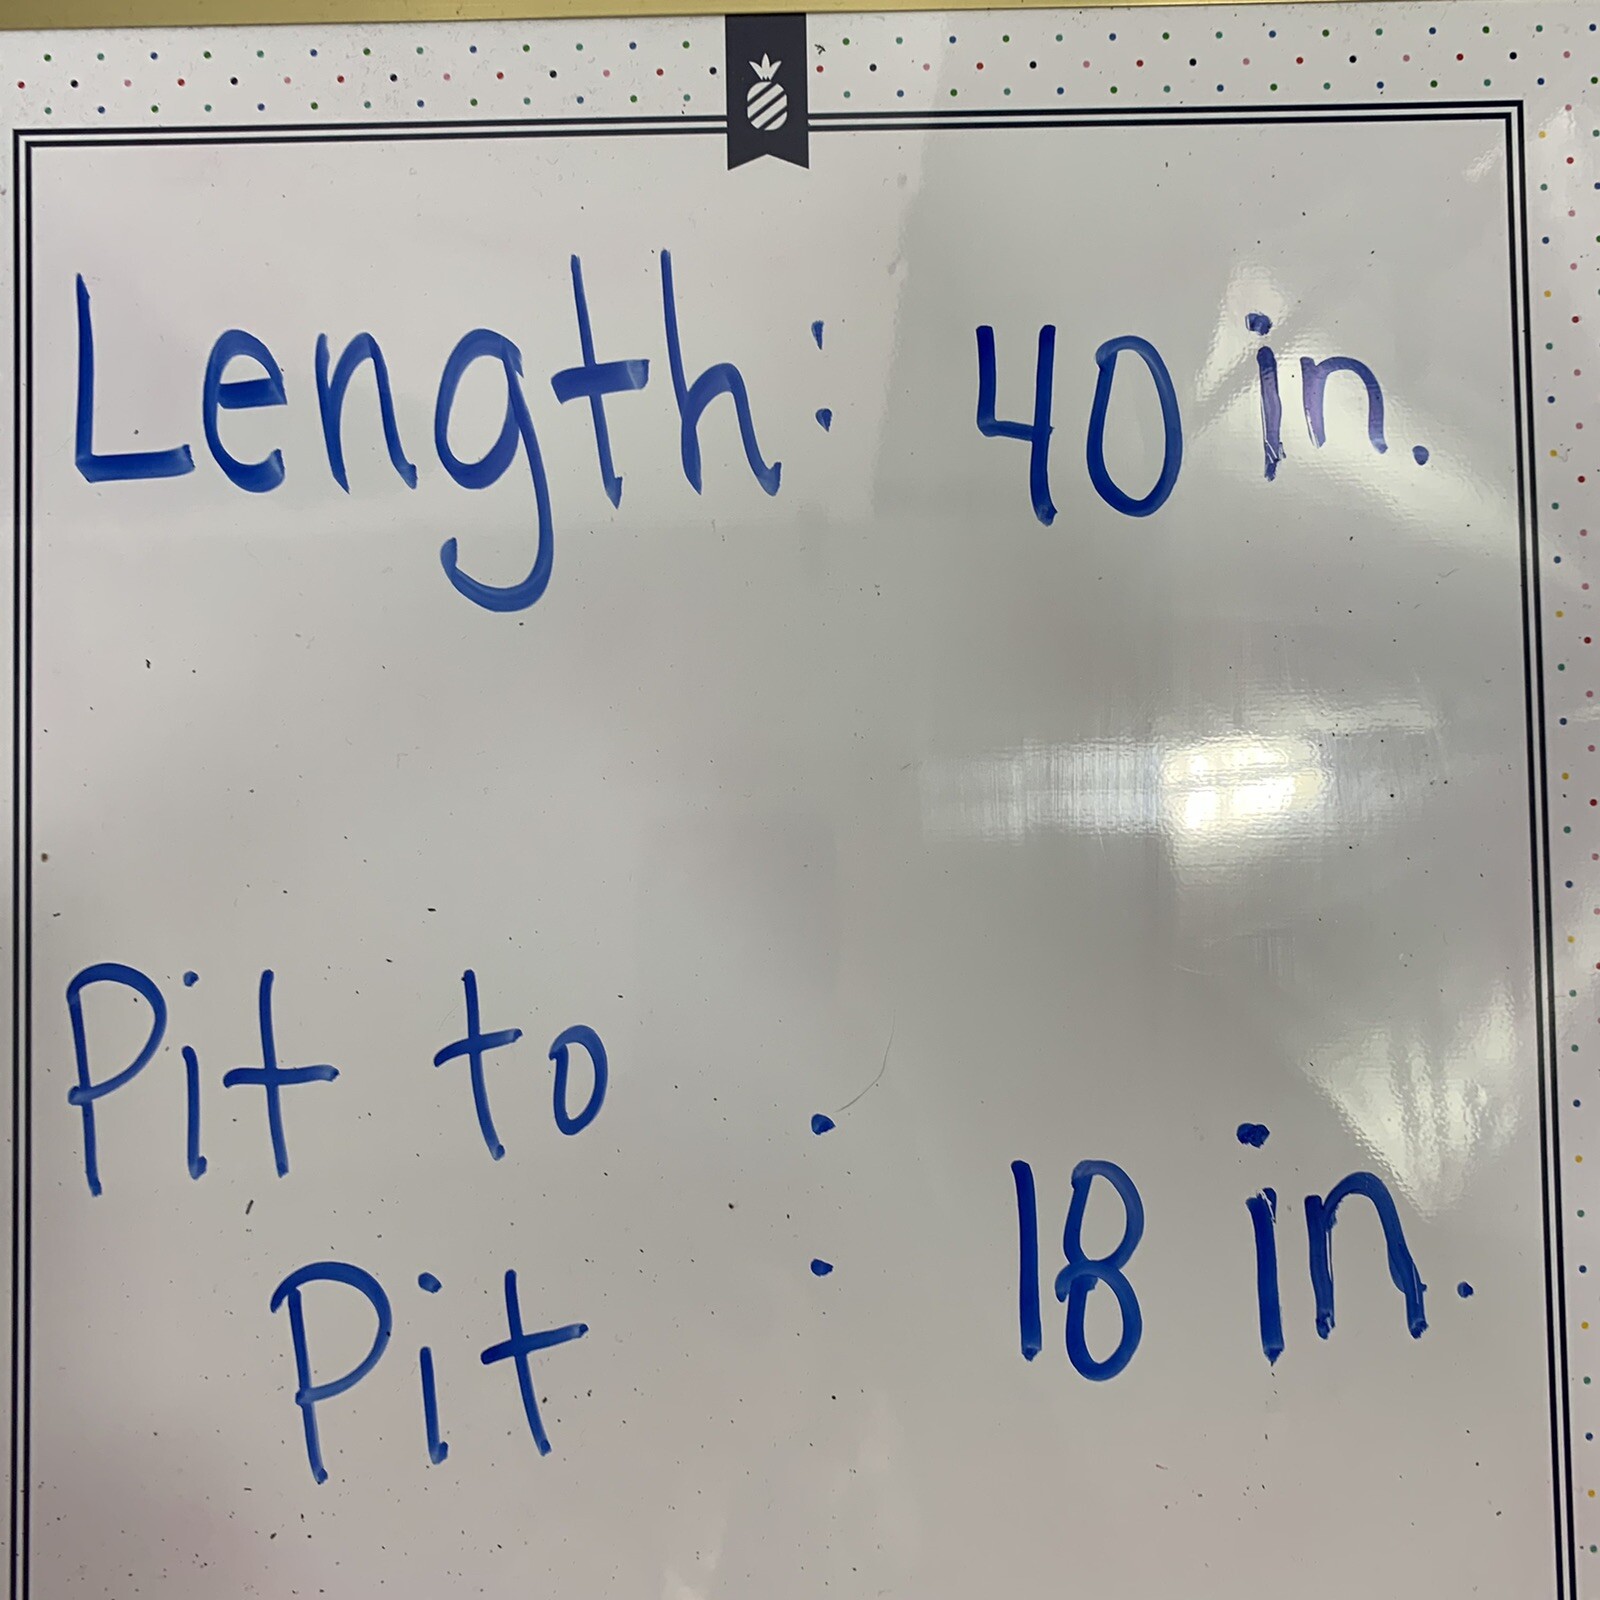 Length: 40 in.
Pit to
Pit : 18 in.